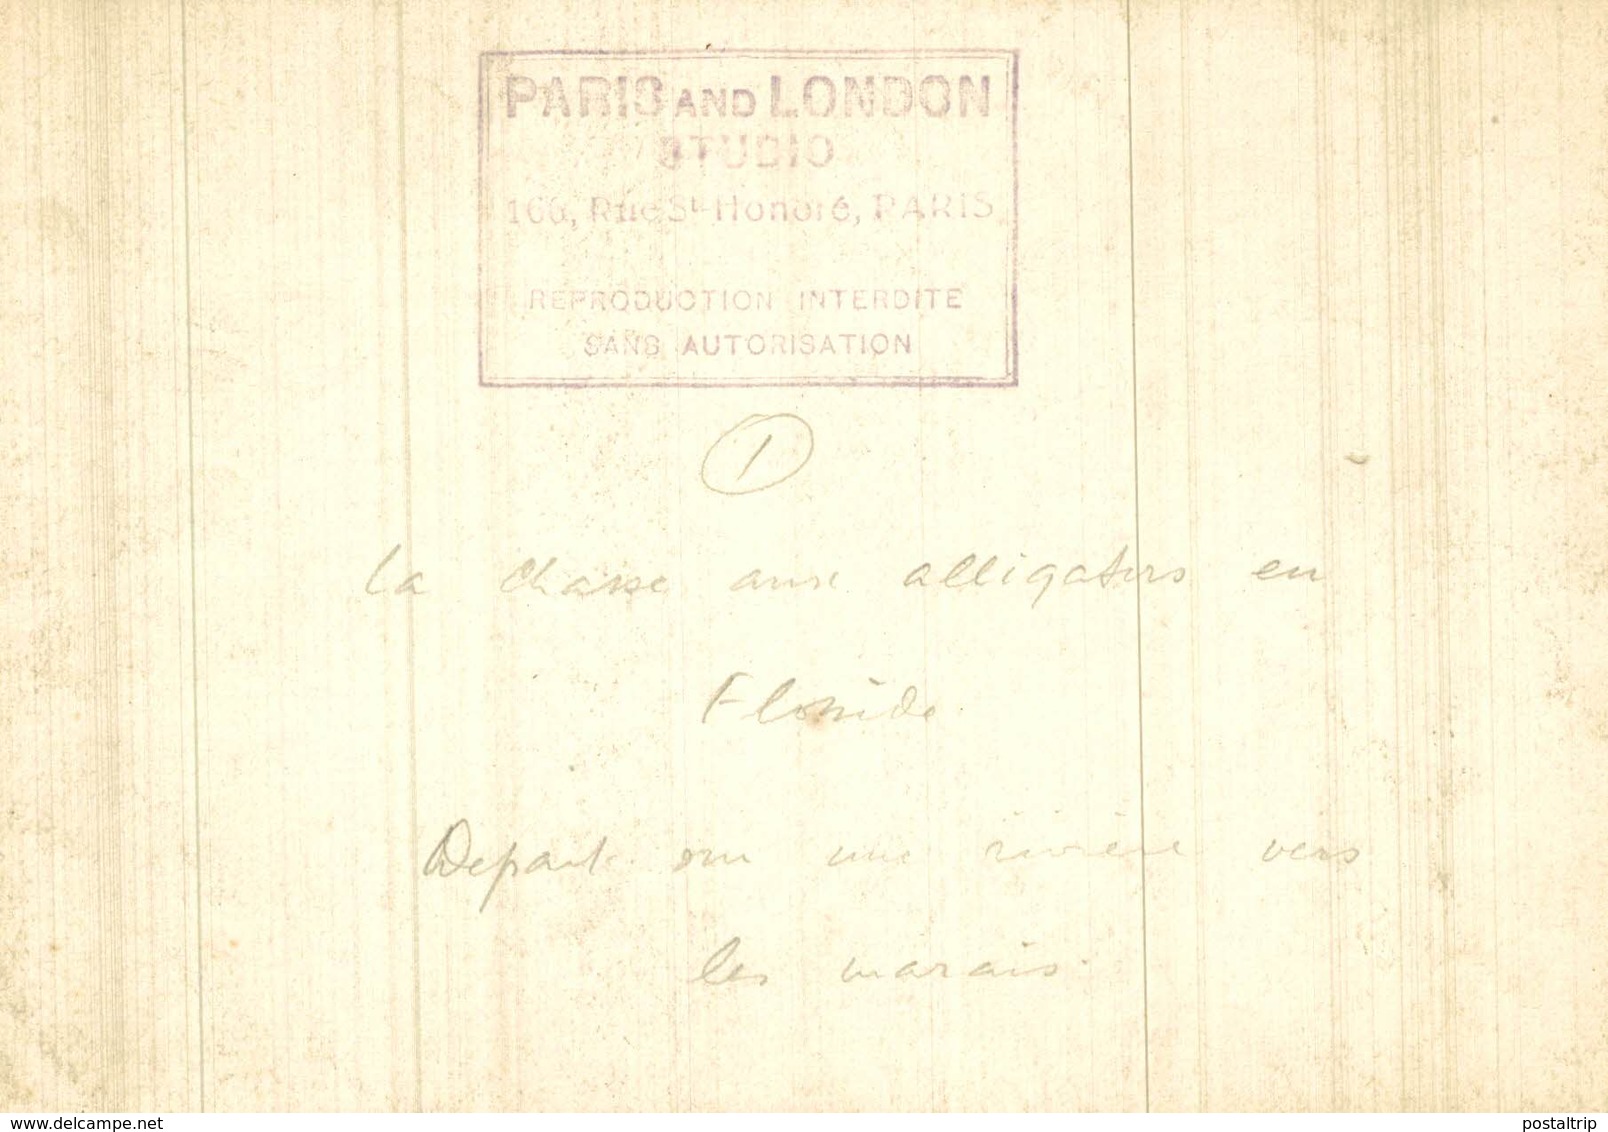 PARIS AND LONDON
STUDIO
Rue St-Honoré, PARIS
REPRODUCTION INTERDITE
SANS AUTORISATION
1
La chasse aux alligators en
Floride.
Depart sur une rivière vers
les marais.
www.delcampe.net
postaltrip